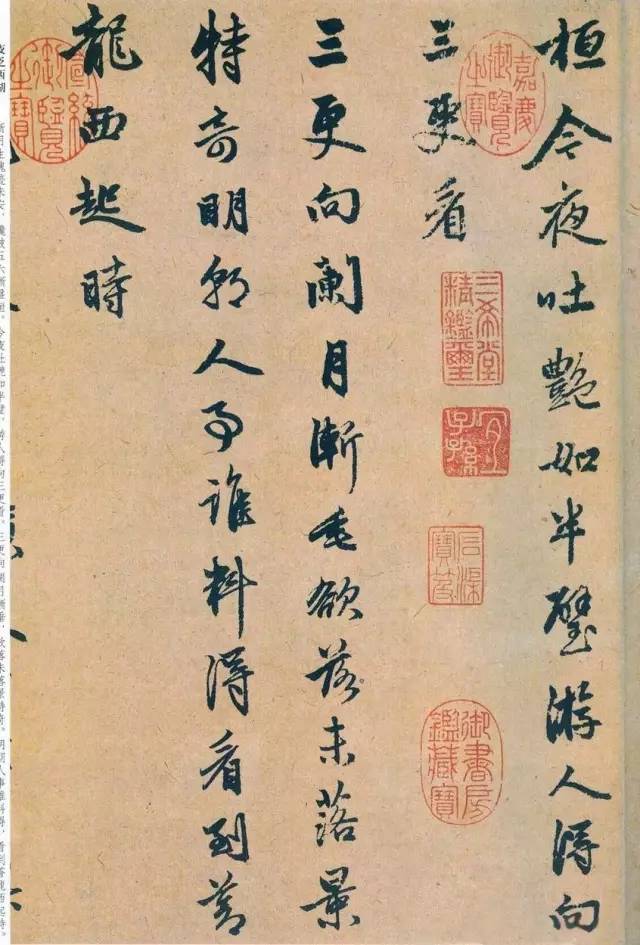 桓今夜吐艷如半璧游人得向
三更看
三更向闌月漸垂欲落未落景
特奇明朝人事誰料得看到蒼
龍西起時
嘉慶御覽之寶
三希堂精鑑璽
宜子孫
石渠寶笈
御書房鑑藏寶
宣統御覽之寶